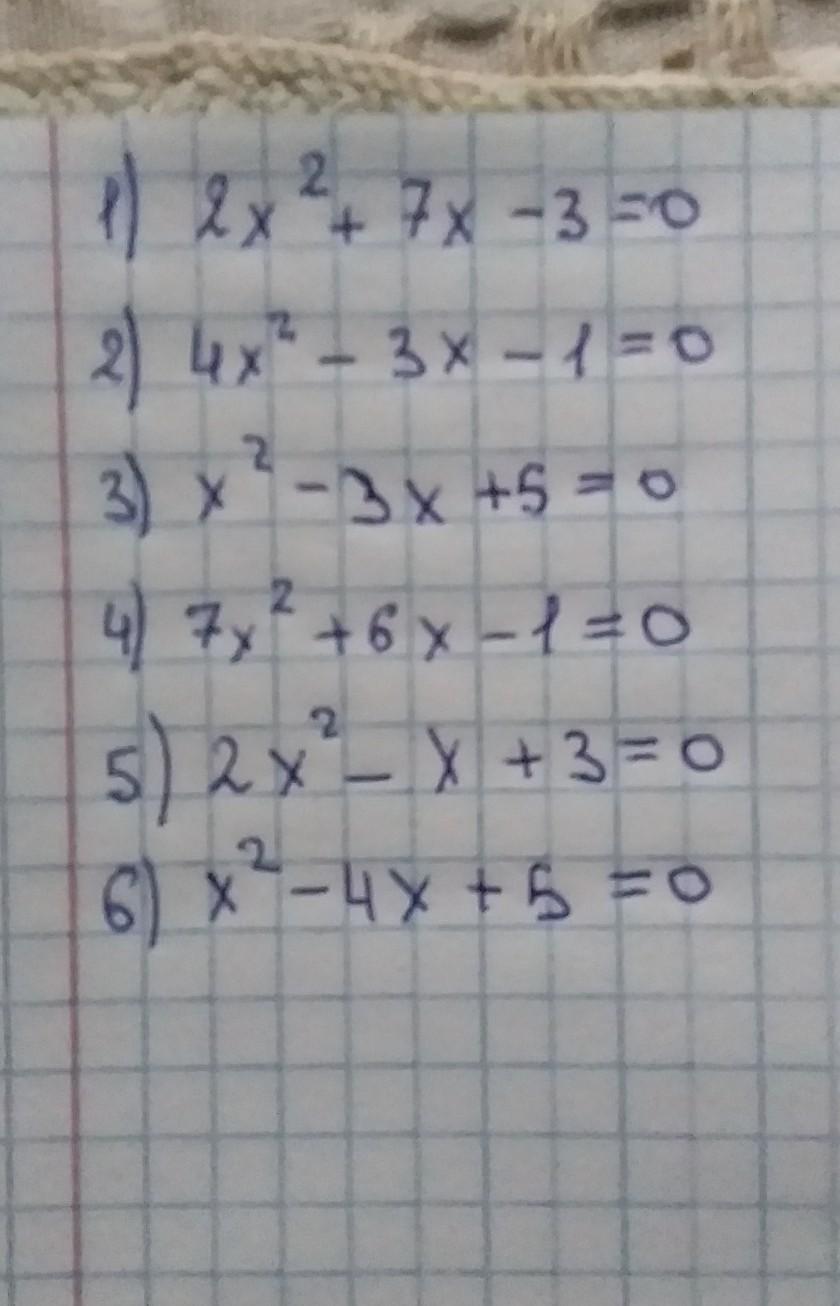 1) 2x² + 7x - 3 = 0
2) 4x² - 3x - 1 = 0
3) x² - 3x + 5 = 0
4) 7x² + 6x - 1 = 0
5) 2x² - x + 3 = 0
6) x² - 4x + 5 = 0